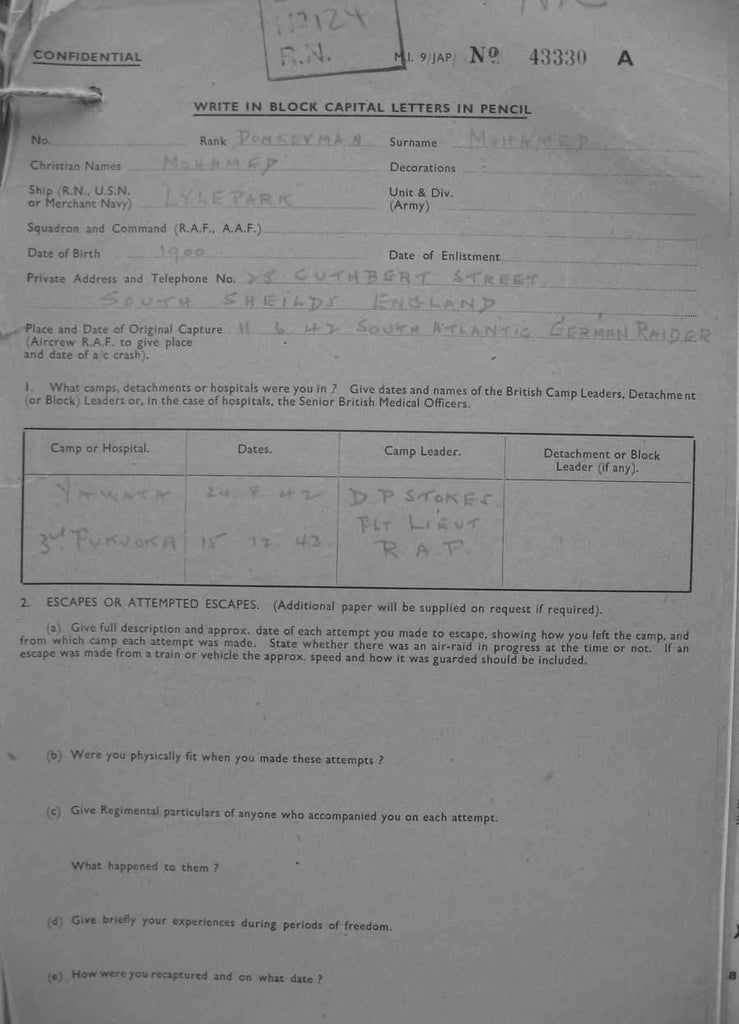 112124
R.N.
CONFIDENTIAL
M.I. 9/JAP/ No 43330 A
WRITE IN BLOCK CAPITAL LETTERS IN PENCIL
No. Rank DONKEYMAN Surname MOHAMED
Christian Names MOHAMED Decorations
Ship (R.N., U.S.N. LYLEPARK Unit & Div.
or Merchant Navy) (Army)
Squadron and Command (R.A.F., A.A.F.)
Date of Birth 1900 Date of Enlistment
Private Address and Telephone No. 25 CUTHBERT STREET
SOUTH SHEILDS ENGLAND
Place and Date of Original Capture 11 6 42 SOUTH ATLANTIC GERMAN RAIDER
(Aircrew R.A.F. to give place
and date of a/c crash).
1. What camps, detachments or hospitals were you in ? Give dates and names of the British Camp Leaders, Detachment
(or Block) Leaders or, in the case of hospitals, the Senior British Medical Officers.
Camp or Hospital. Dates. Camp Leader. Detachment or Block
Leader (if any).
YAWATA 24 9 42 D P STOKES
FLT LIEUT
3rd FUKUOKA 15 12 43 R A F.
2. ESCAPES OR ATTEMPTED ESCAPES. (Additional paper will be supplied on request if required).
(a) Give full description and approx. date of each attempt you made to escape, showing how you left the camp, and
from which camp each attempt was made. State whether there was an air-raid in progress at the time or not. If an
escape was made from a train or vehicle the approx. speed and how it was guarded should be included.
(b) Were you physically fit when you made these attempts ?
(c) Give Regimental particulars of anyone who accompanied you on each attempt.
What happened to them ?
(d) Give briefly your experiences during periods of freedom.
(e) How were you recaptured and on what date ?